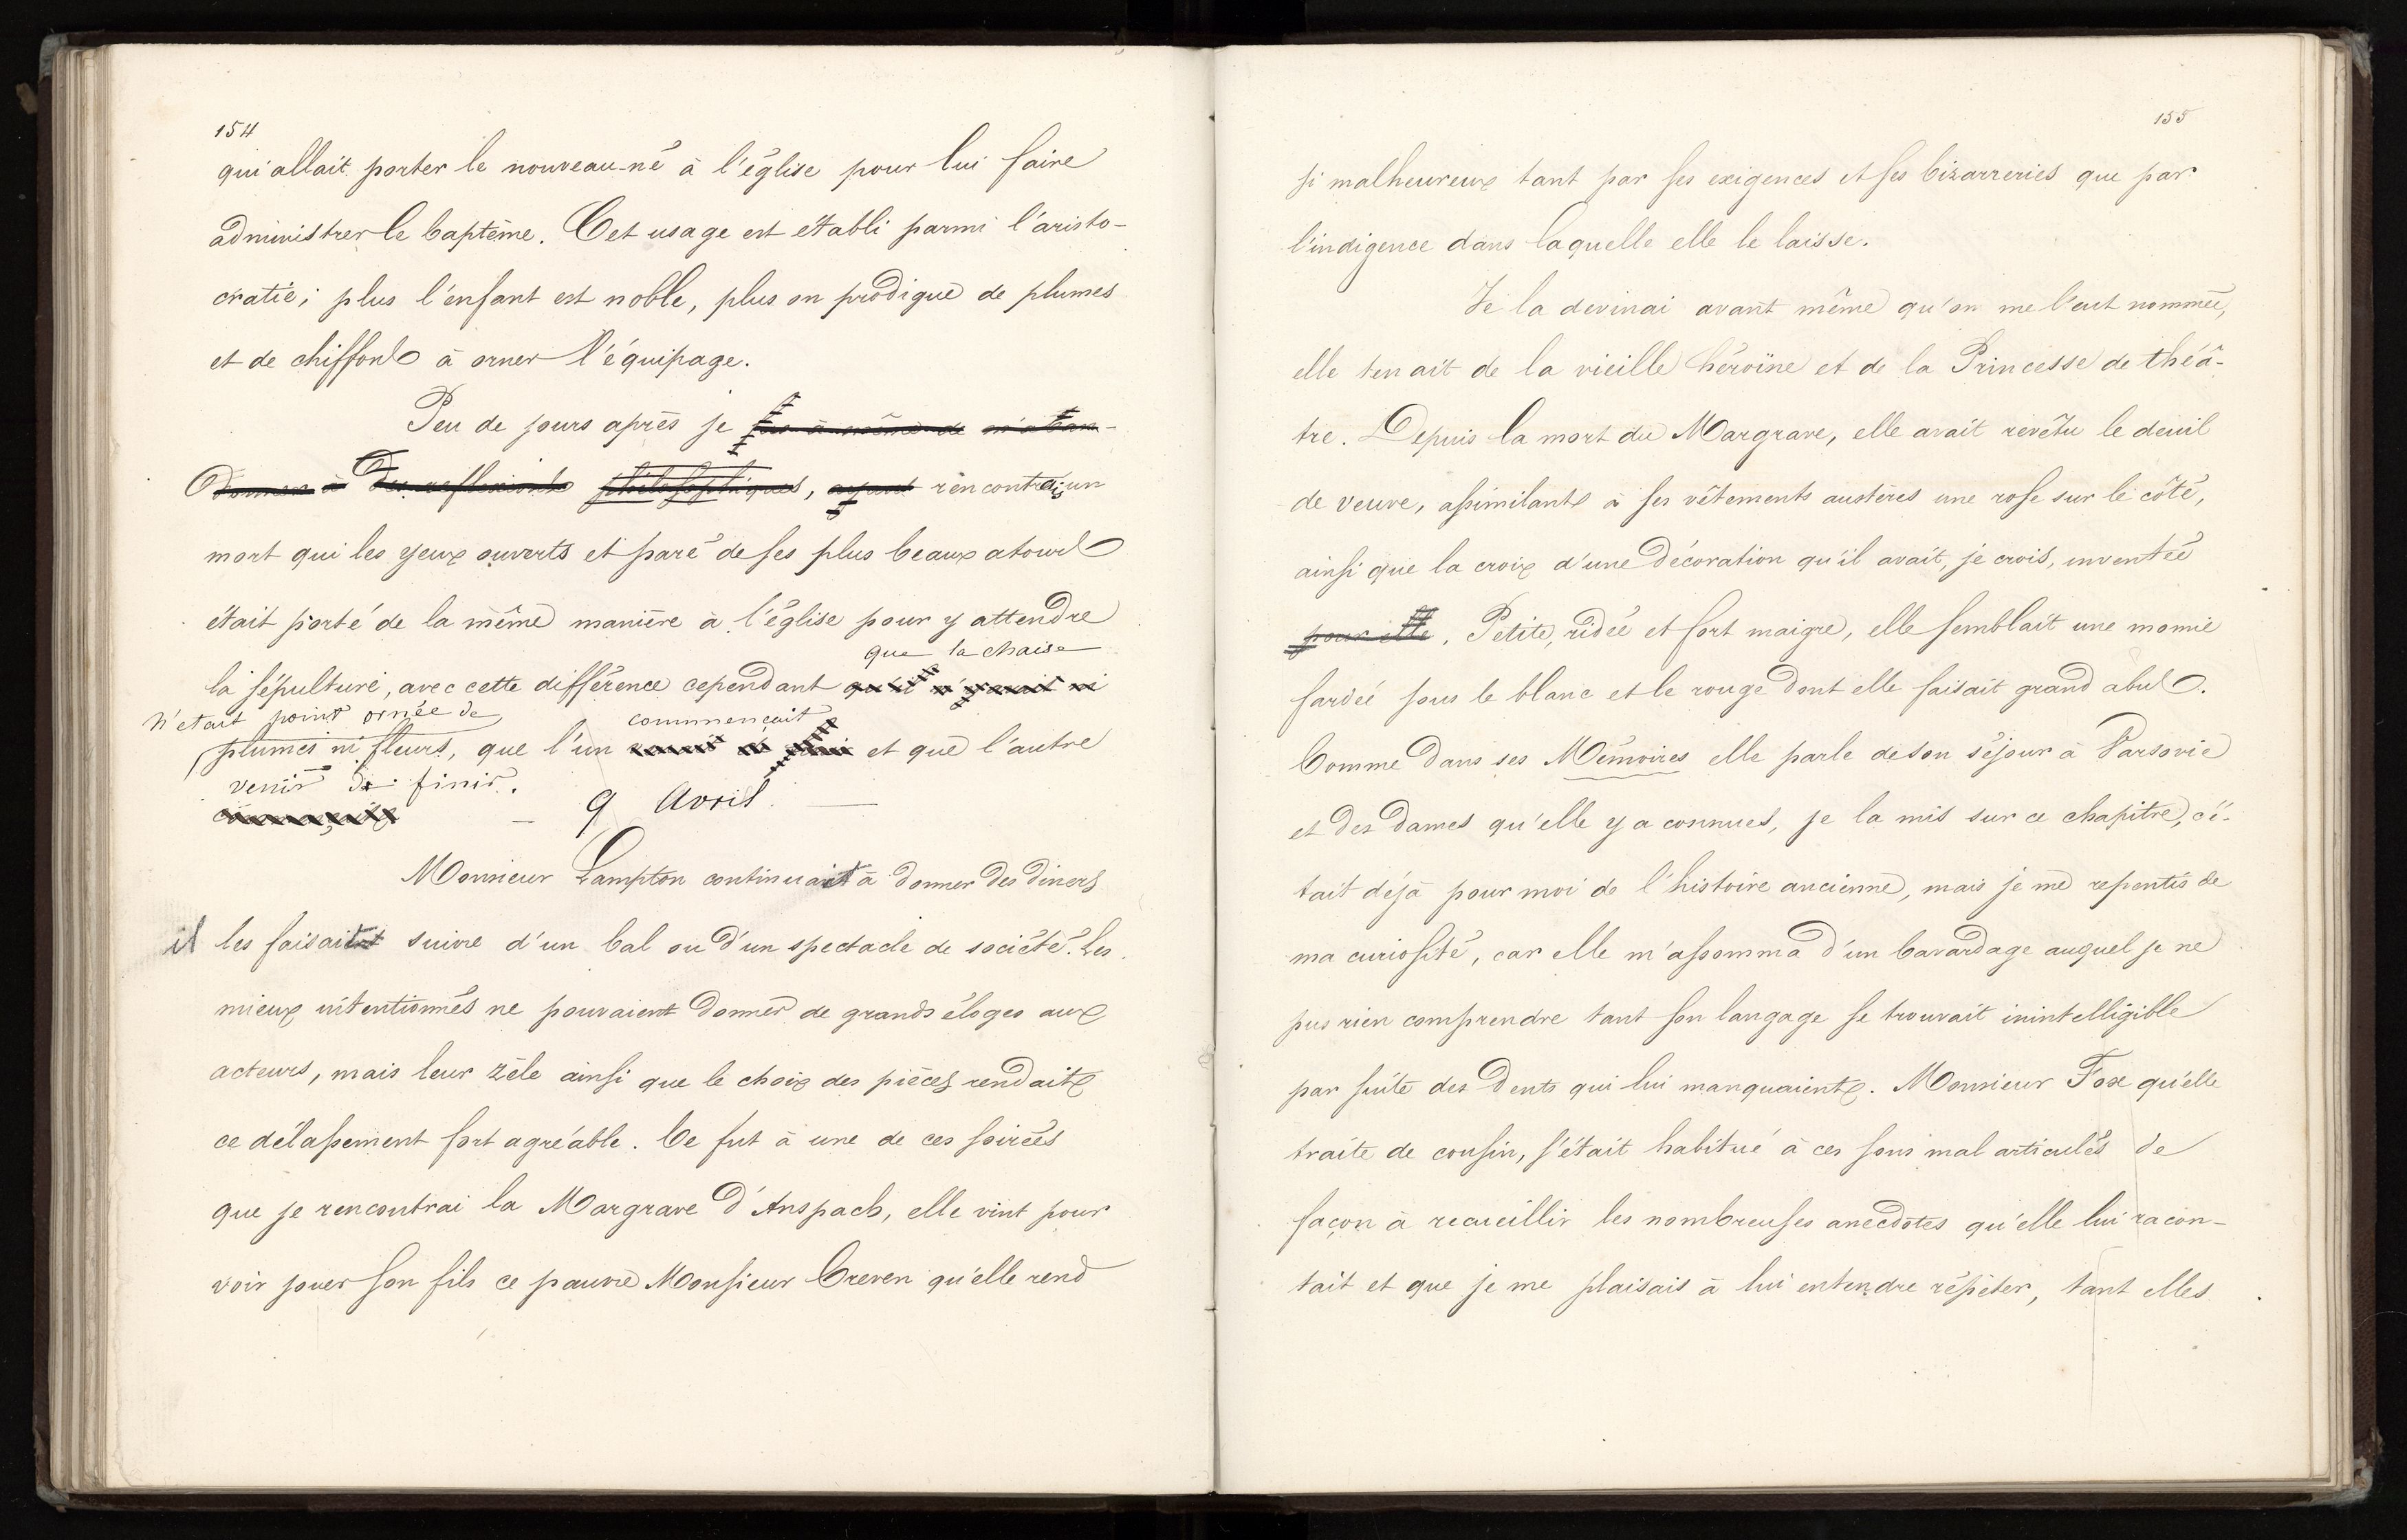 154
qui allait porter le nouveau-né à l'église pour lui faire
administrer le baptême. Cet usage est établi parmi l'aristo-
cratie; plus l'enfant est noble, plus on prodigue de plumes
et de chiffons à orner l'équipage.
Peu de jours après je fus à même de m'aban-
donner à des reflexions philosophiques, ayant rencontrais un
mort qui les yeux ouverts et paré de ses plus beaux atours
était porté de la même manière à l'église pour y attendre
que la chaise
la sépulture, avec cette différence cependant qu'il n'y avait ni
n'etait point ornée de
commencait
plumes ni fleurs, que l'un et que l'autre
venir de finir.
commençait
9 Avril.
Monsieur Lampton continuait à donner des diners
il les faisait suivre d'un bal ou d'un spectacle de société. Les
mieux intentionnés ne pouvaient donner de grands éloges aux
acteurs, mais leur zèle ainsi que le choix des pièces rendait
ce délassement fort agréable. Ce fut à une de ces soirées
que je rencontrai la Margrave d'Anspach, elle vint pour
voir jouer son fils ce pauvre Monsieur Creven qu'elle rend
155
si malheureux tant par ses exigences et ses bizarreries que par
l'indigence dans laquelle elle le laisse.
Je la devinai avant même qu'on me l'eut nommée,
elle tenait de la vieille héroïne et de la Princesse de théâ-
tre. Depuis la mort du Margrave, elle avait revêtu le deuil
de veuve, assimilant à ses vêtements austères une rose sur le côté,
ainsi que la croix d'une décoration qu'il avait, je crois, inventée
pour elle. Petite, ridée et fort maigre, elle semblait une momie
fardée sous le blanc et le rouge dont elle faisait grand abus.
Comme dans ses Mémoires elle parle de son séjour à Varsovie
et des dames qu'elle y a connues, je la mis sur ce chapitre, c'é-
tait déjà pour moi de l'histoire ancienne, mais je me repentis de
ma curiosité, car elle m'assomma d'un bavardage auquel je ne
pus rien comprendre tant son langage se trouvait inintelligible
par suite des dents qui lui manquaient. Monsieur Fox qu'elle
traite de cousin, s'était habitué à ces sons mal articulés de
façon à recueillir les nombreuses anecdotes qu'elle lui racon-
tait et que je me plaisais à lui entendre répéter, tant elles